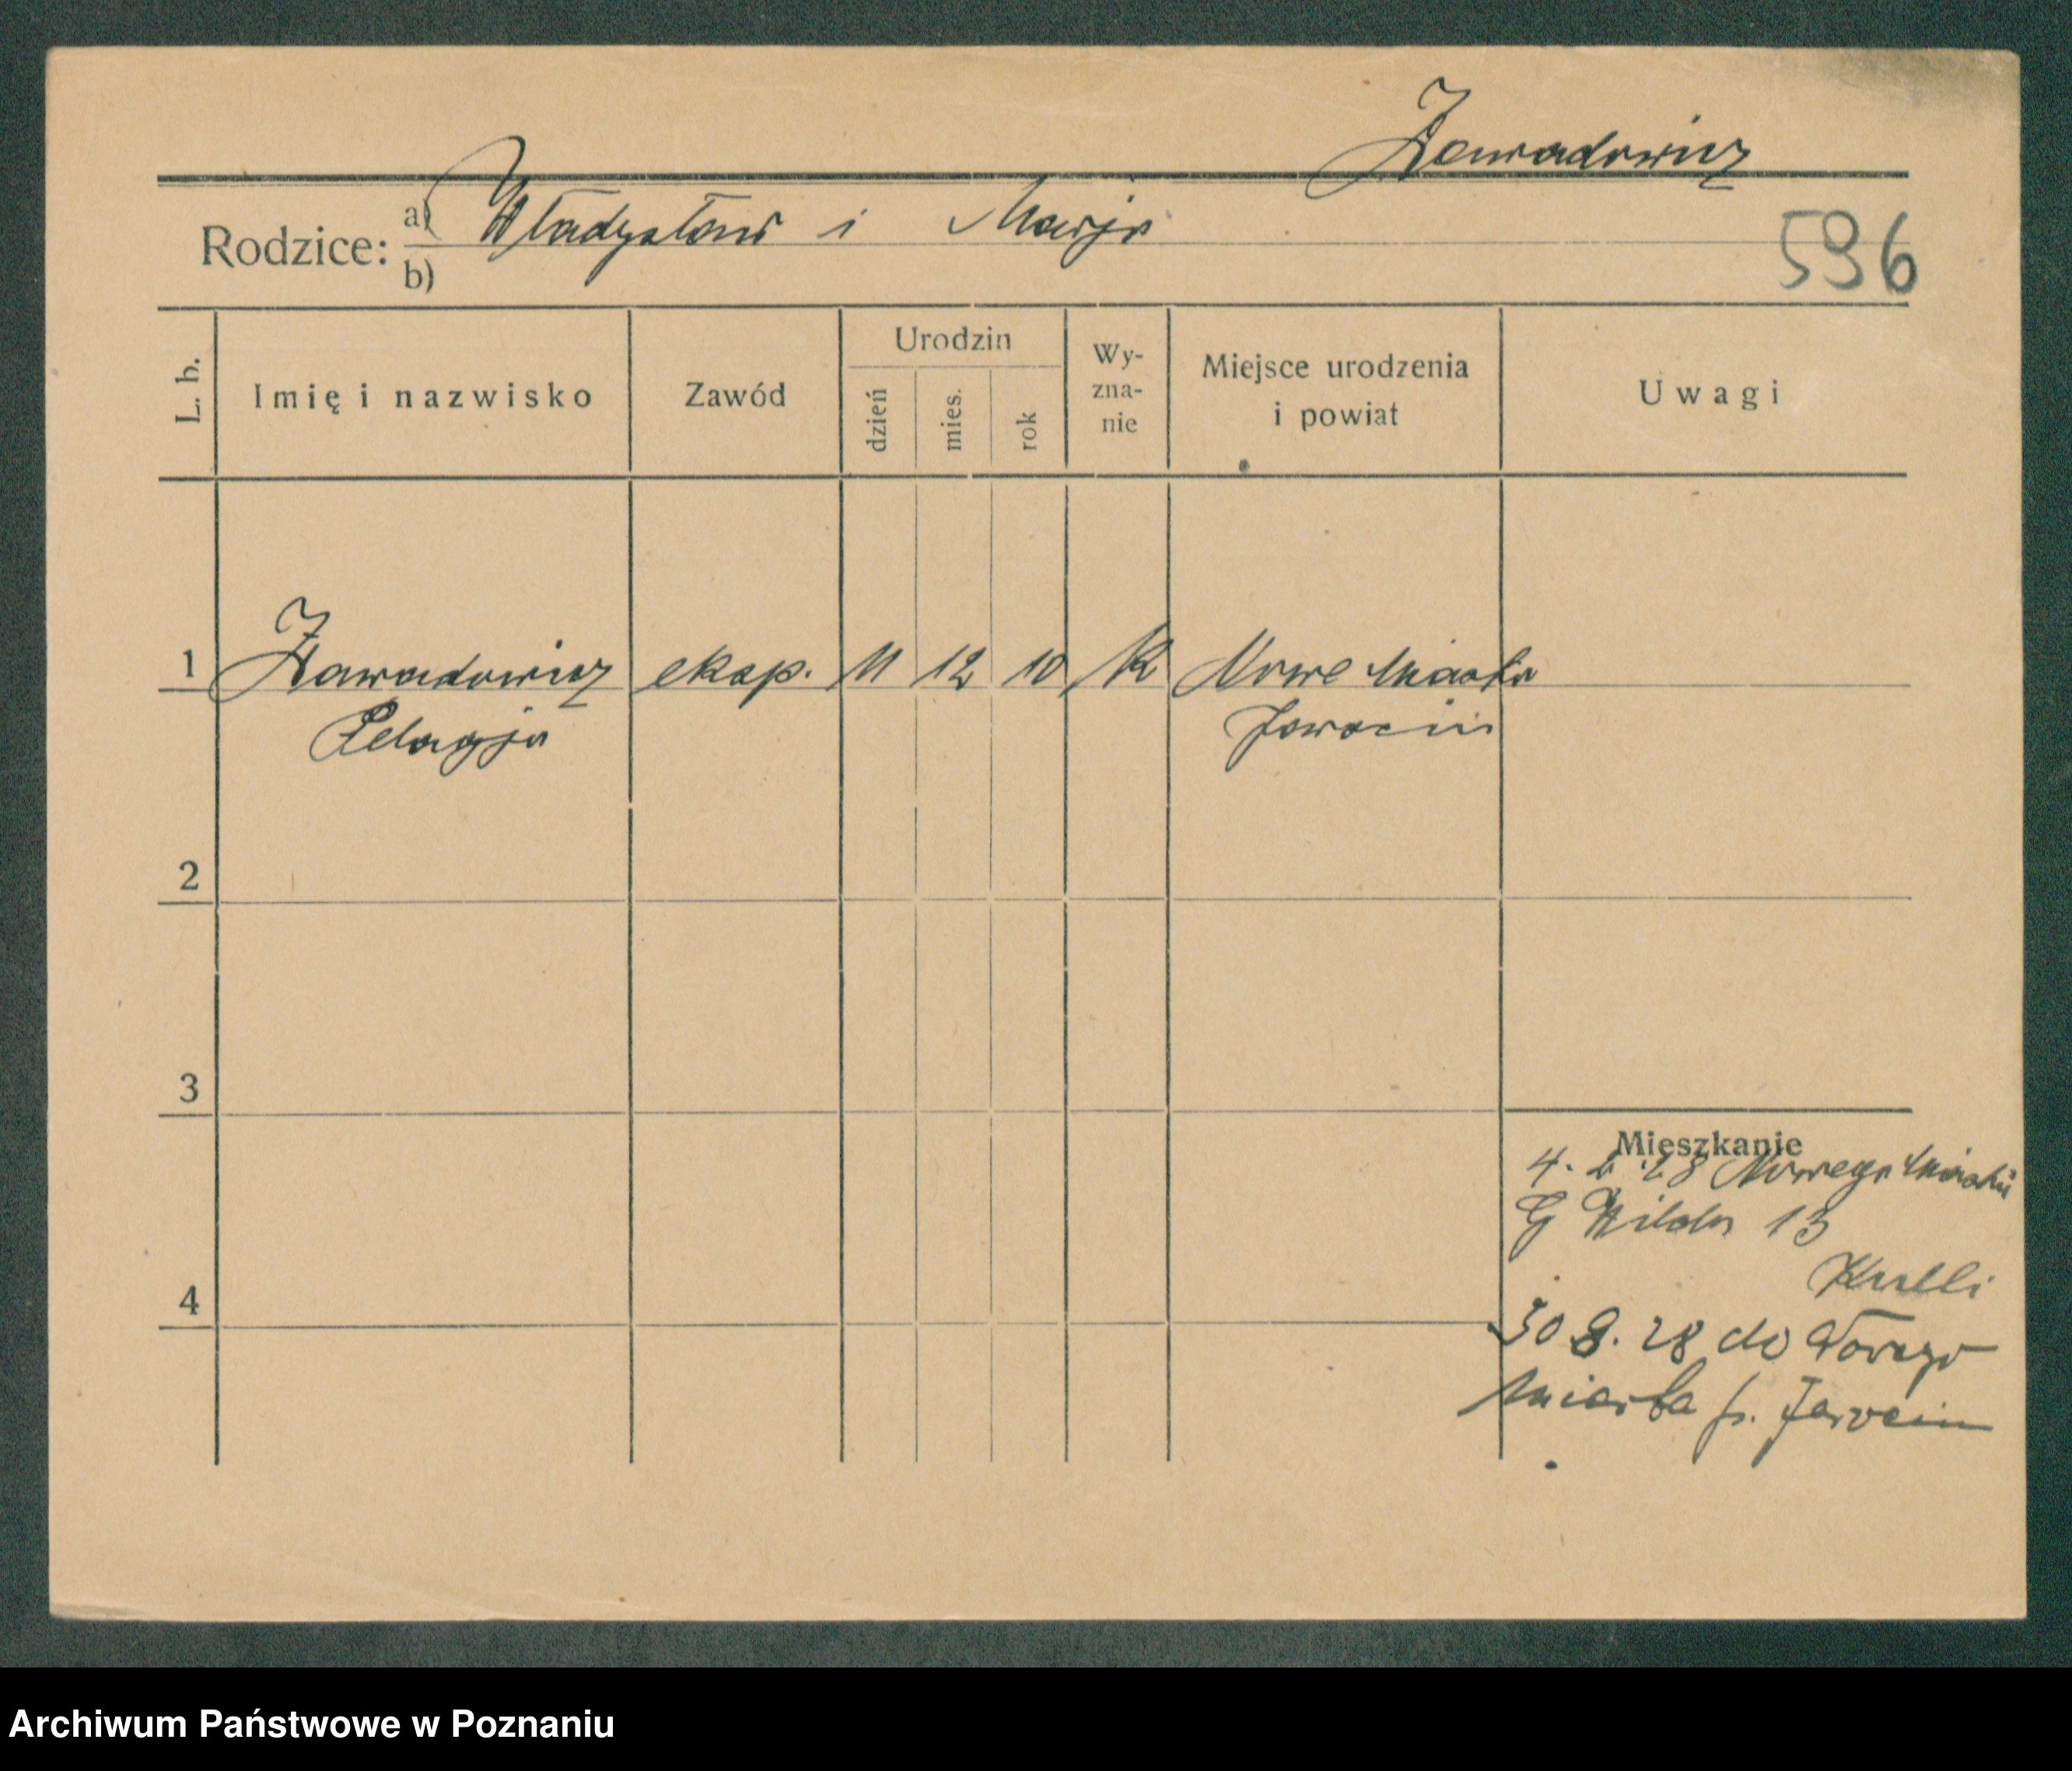 Zawadowicz
Rodzice: a) Władysław i Marja
b)
596
L. b.
Imię i nazwisko
Zawód
Urodzin
dzień
mies.
rok
Wy-
zna-
nie
Miejsce urodzenia
i powiat
Uwagi
1 Zawadowicz eksp. 11 12 10 K Nowe Miasto
Pelagja Jarocin
2
3
4
Mieszkanie
4. 28 Nowego Miasta
G Wilda 13
30 8. 28 do Nowego
Miasta p. Jarocin
Archiwum Państwowe w Poznaniu